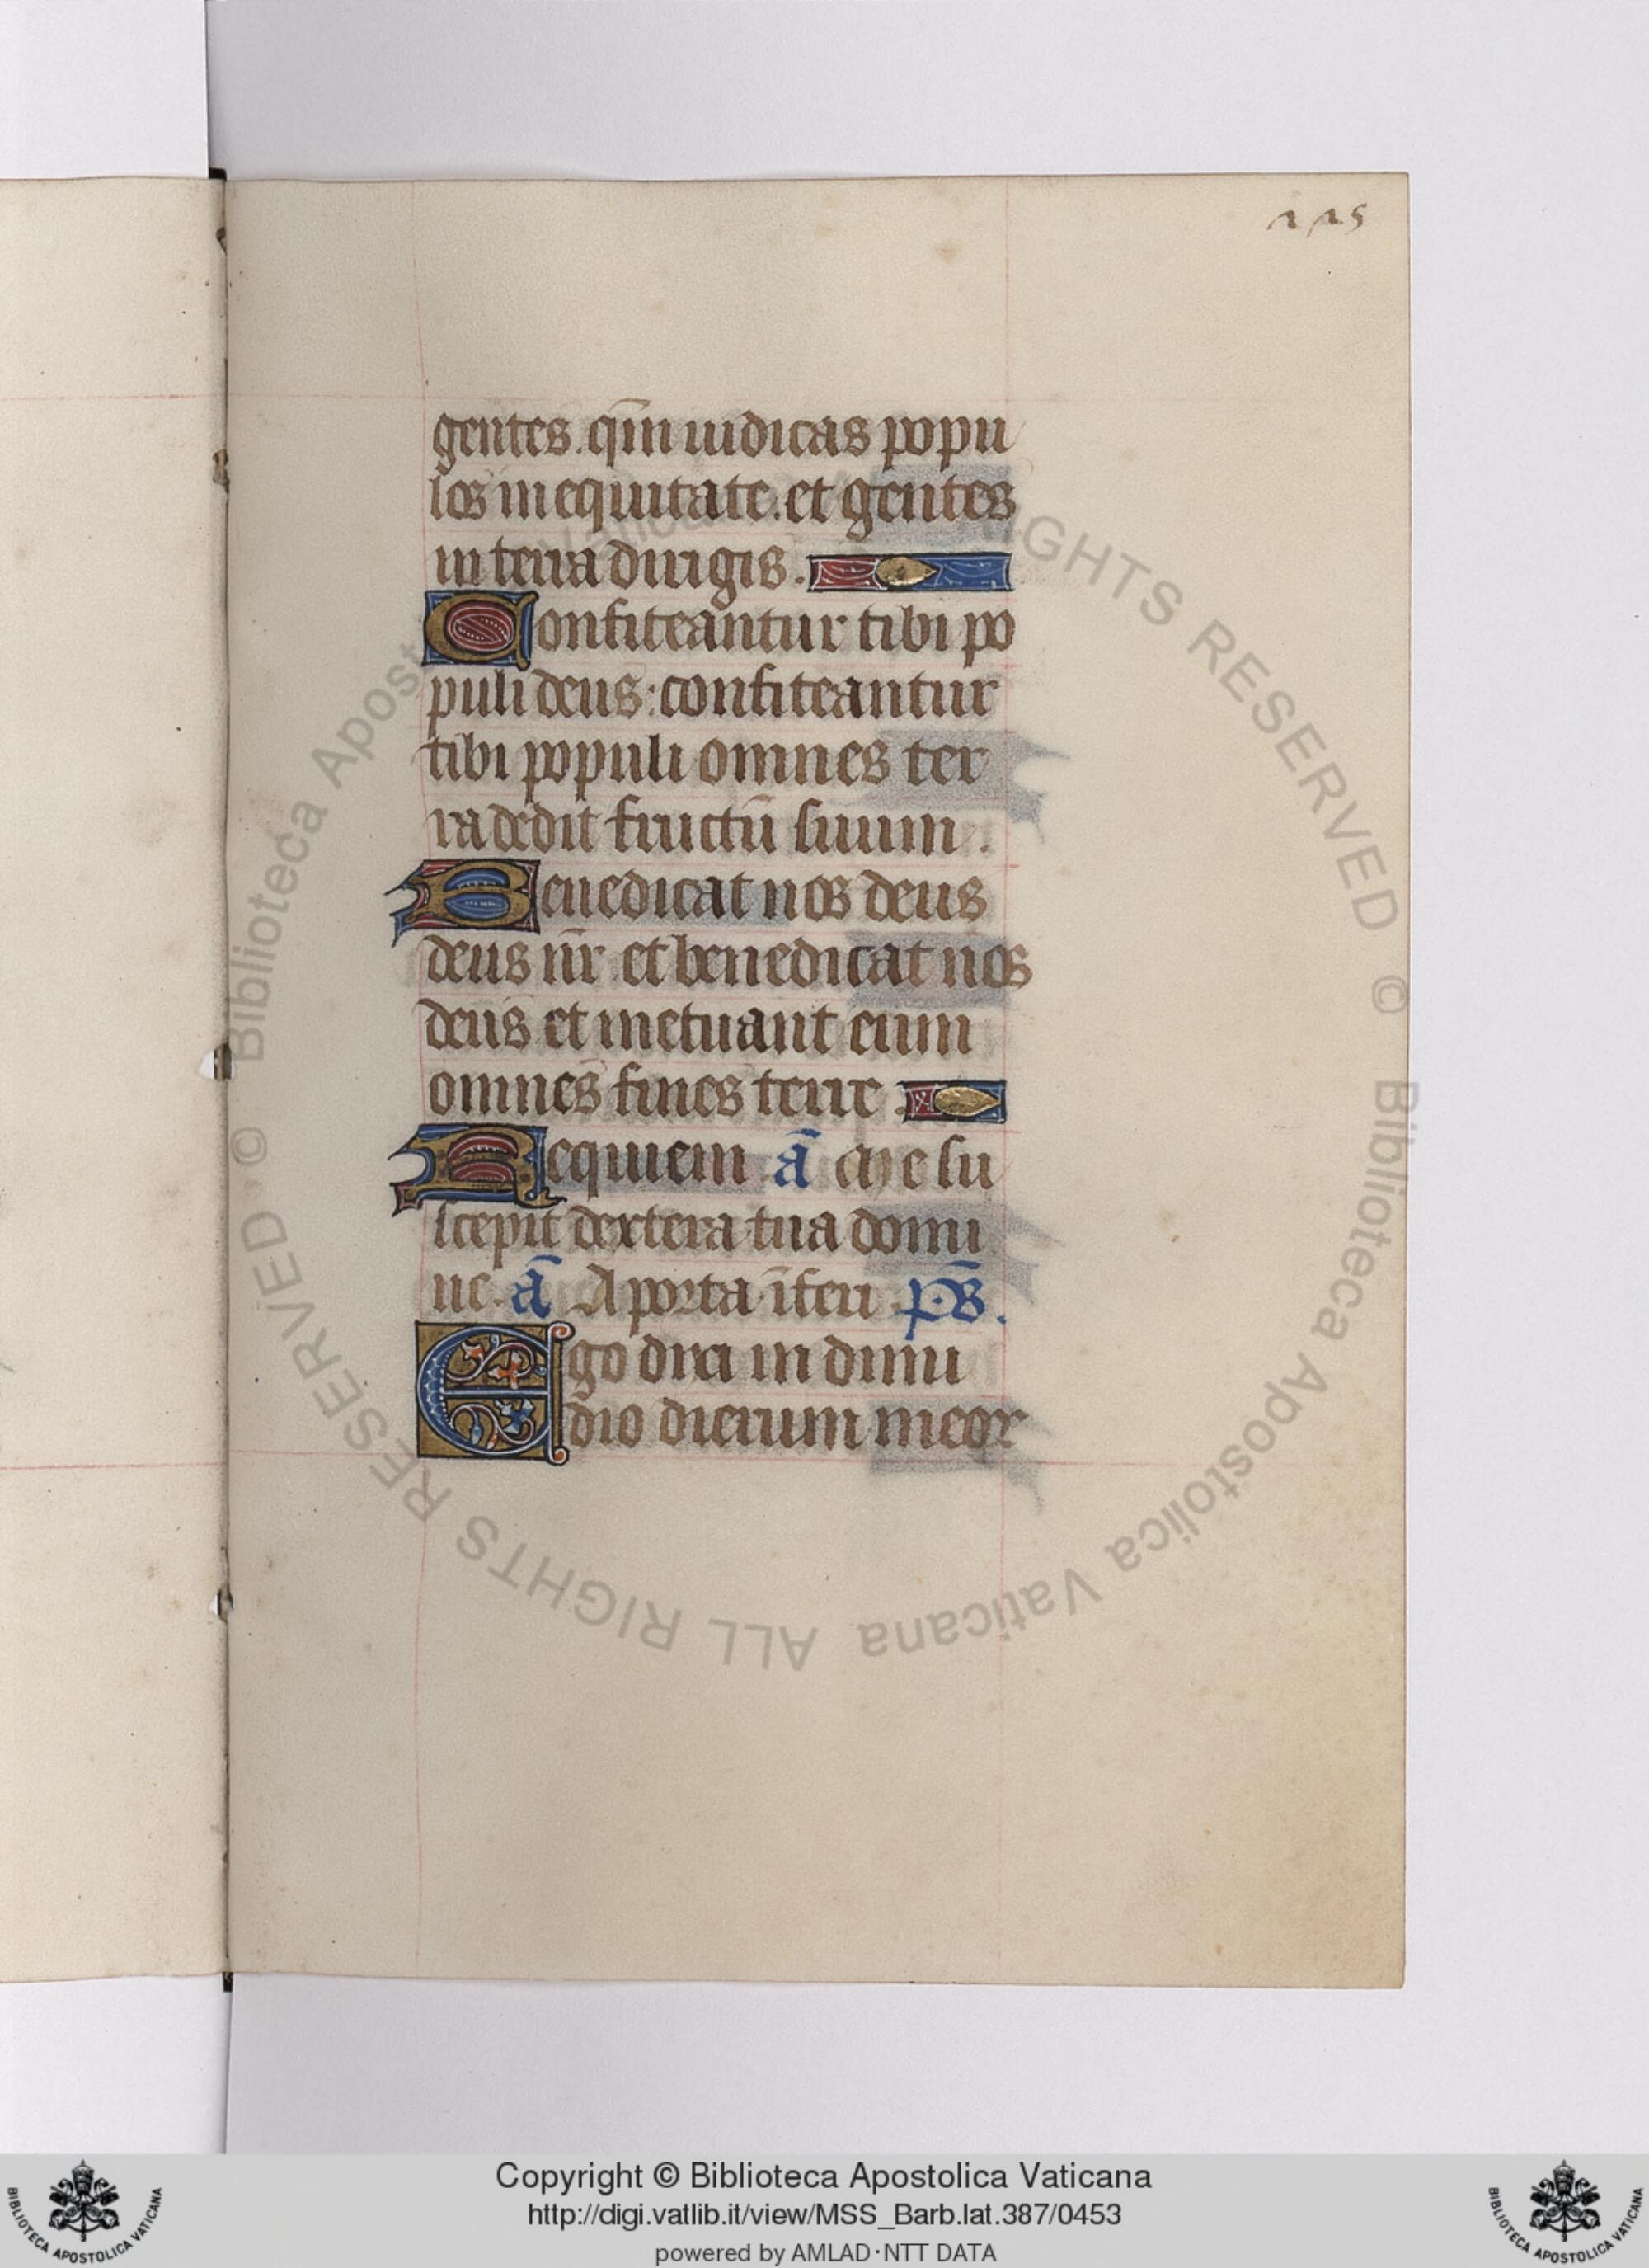 225
gentes. qm̄ iudicas popu
los in equitate. et gentes
in terra dirigis.
Confiteantur tibi po
puli deus: confiteantur
tibi populi omnes ter
ra dedit fructū suum.
Benedicat nos deus
deus nr̄ et benedicat nos
deus et metuant eum
omnes fines terre.
Requiem ā Me su
scepit dextera tua domi
ne. ā A porta īferi p̄s.
Ego dixi in dimi
dio dierum meor
© Biblioteca Apostolica Vaticana ALL RIGHTS RESERVED © Biblioteca Apostolica Vaticana ALL RIGHTS RESERVED
Copyright © Biblioteca Apostolica Vaticana
http://digi.vatlib.it/view/MSS_Barb.lat.387/0453
powered by AMLAD·NTT DATA
BIBLIOTECA APOSTOLICA VATICANA
BIBLIOTECA APOSTOLICA VATICANA